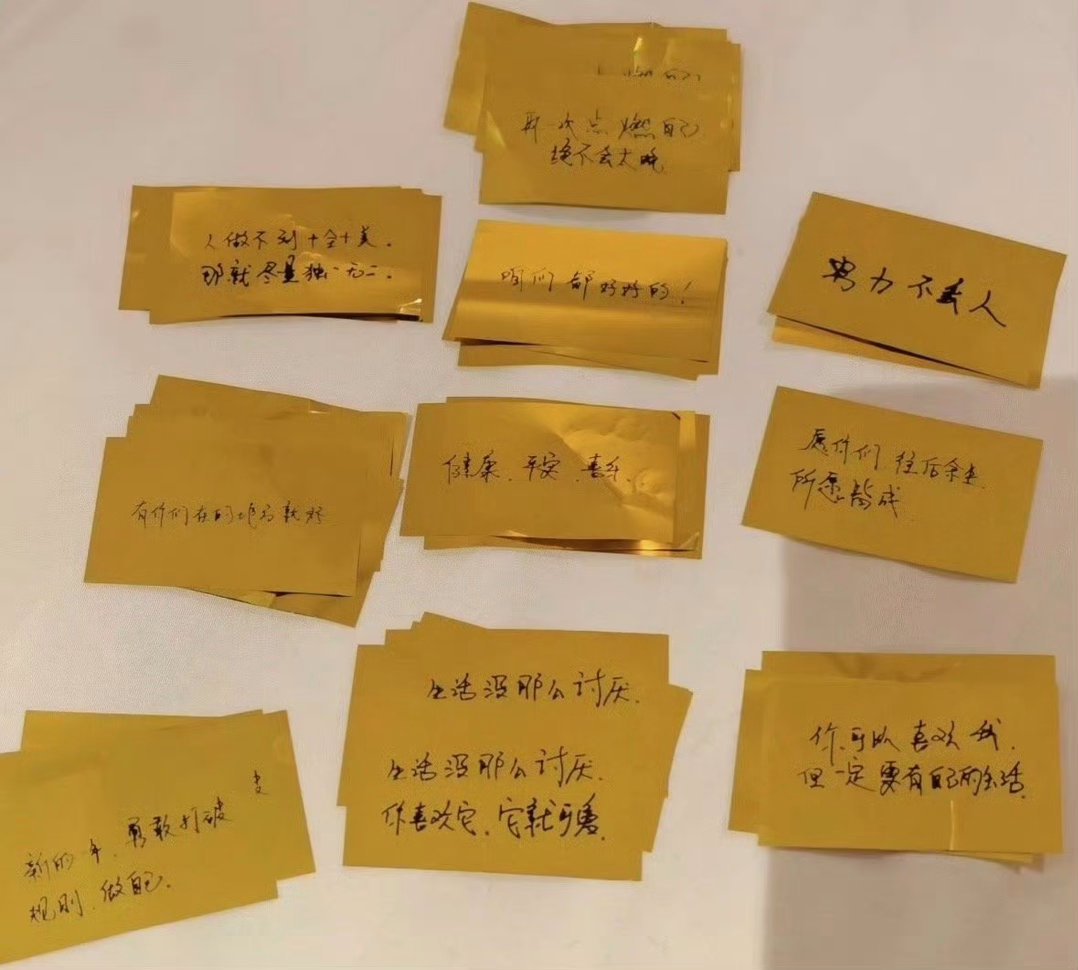 再一次点燃自己
绝不会太晚
人做不到十全十美.
那就尽量独一无二.
咱们都好好的!
努力不丢人
有你们在的地方就好
健康、平安、喜乐.
愿你们往后余生.
所愿皆成
生活没那么讨厌.
生活没那么讨厌.
你喜欢它、它就可爱.
你可以喜欢我.
但一定要有自己的生活.
新的年、勇敢打破
规则、做自己.